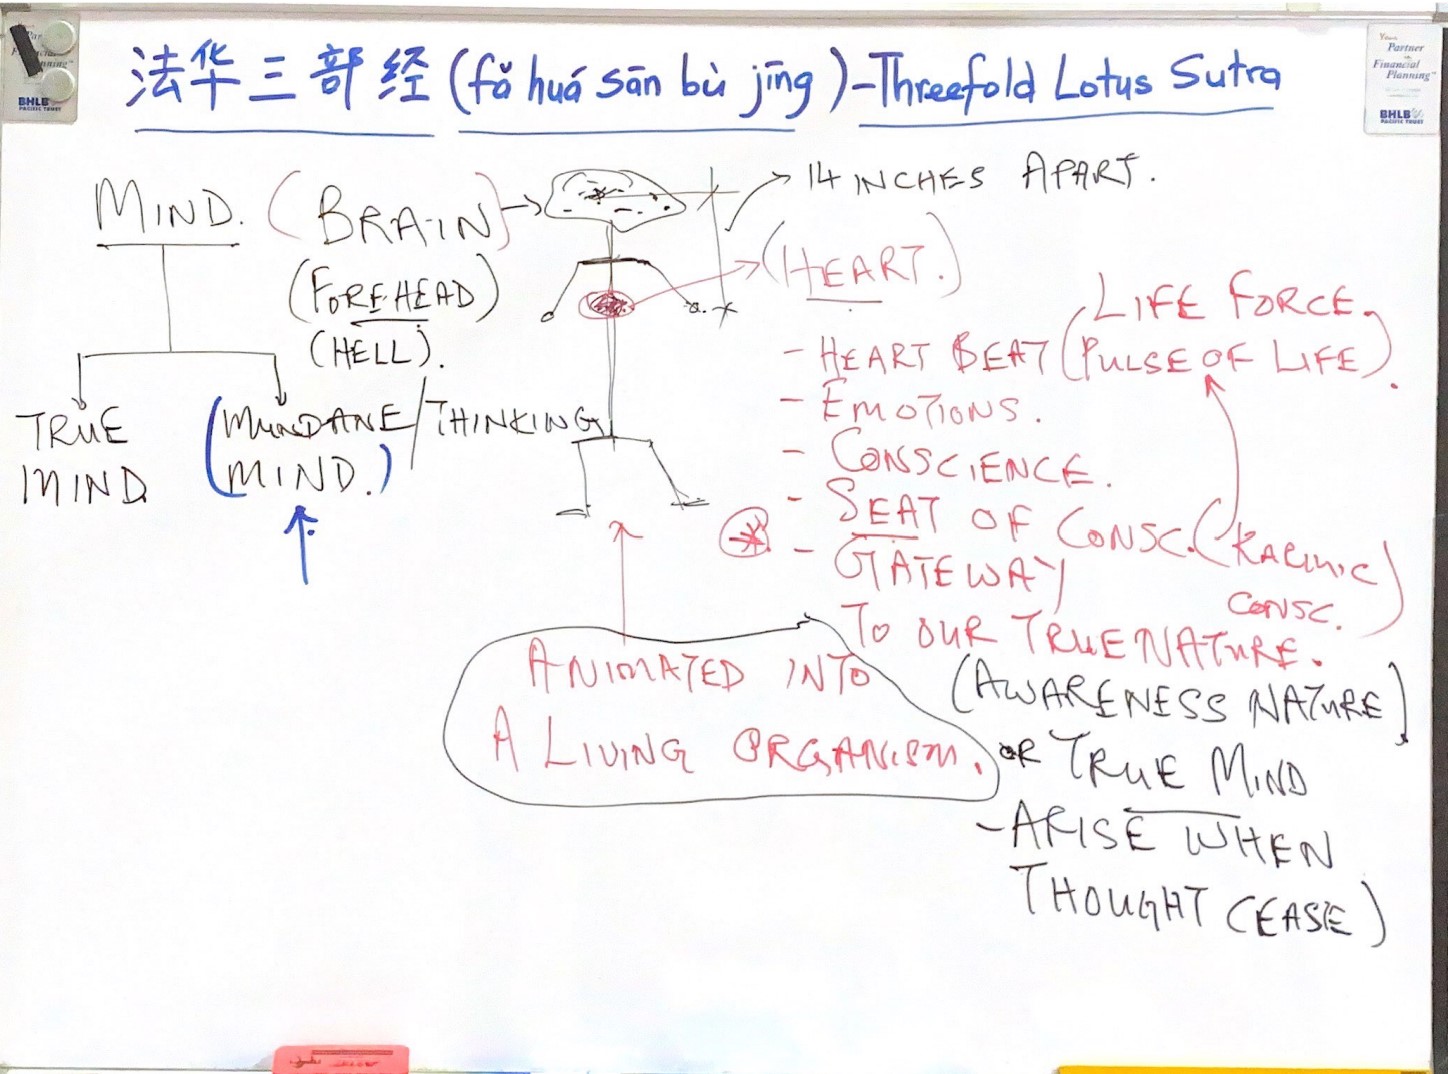 法华三部经 (fǎ huá sān bù jīng) - Threefold Lotus Sutra
Partner
Financial
Planning
BHLB
PACIFIC TRUST
BHLB
PACIFIC TRUST
MIND. (BRAIN)
(FOREHEAD)
(HELL).
TRUE
MIND
(MUNDANE/THINKING
MIND.)
14 INCHES APART.
(HEART.)
LIFE FORCE.
- HEART BEAT (PULSE OF LIFE).
- EMOTIONS.
- CONSCIENCE.
- SEAT OF CONSC. (KARMIC
CONSC.)
- GATEWAY
TO OUR TRUE NATURE.
(AWARENESS NATURE)
OR TRUE MIND
- ARISE WHEN
THOUGHT CEASE)
ANIMATED INTO
A LIVING ORGANISM.